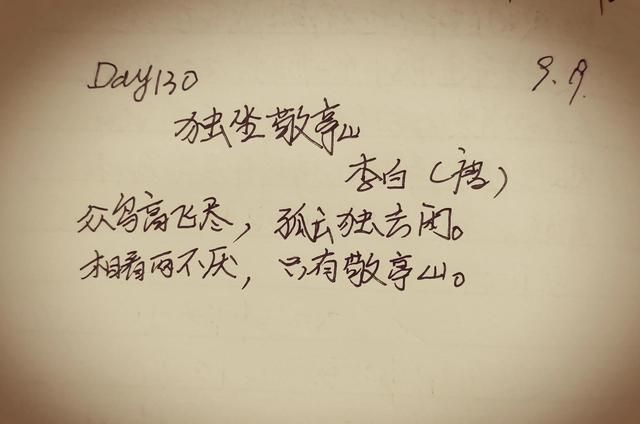 Day130 9.9.
独坐敬亭山
李白(唐)
众鸟高飞尽，孤云独去闲。
相看两不厌，只有敬亭山。